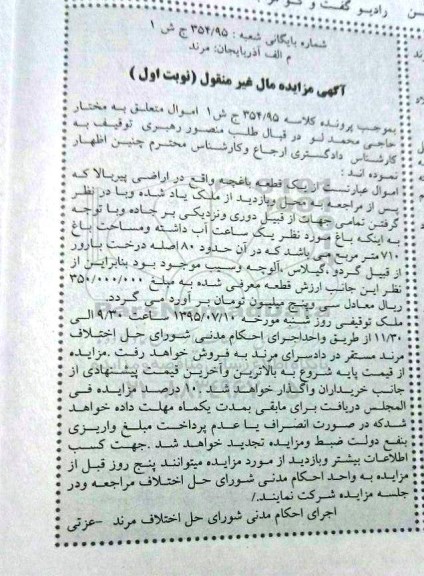 رادیو گفت و گو
شماره بایگانی شعبه : ۳۵۴/۹۵ ج ش ۱
م الف آذربایجان: مرند
آگهی مزایده مال غیر منقول (نوبت اول)
بموجب پرونده کلاسه ۳۵۴/۹۵ ج ش۱ اموال متعلق به مختار
حاجی محمد لو در قبال طلب منصور رهبری توقیف به
کارشناس دادگستری ارجاع وکارشناس محترم چنین اظهار
نموده اند :
اموال عبارتست از یک قطعه باغچه واقع در اراضی پیربالا که
پس از مراجعه به محل وبازدید از ملک یاد شده وبا در نظر
گرفتن تمامی جهات از قبیل دوری ونزدیکی بر جاده وبا توجه
به اینکه باغ مورد نظر یک ساعت آب داشته ومساحت باغ
۷۱۰متر مربع می باشد که در آن حدود ۸۰اصله درخت بارور
از قبیل گردو ،گیلاس ،آلوچه وسیب موجود بود بنابراین از
نظر این جانب ارزش قطعه معرفی شده به مبلغ ۳۵۰/۰۰۰/۰۰۰
ریال معادل سی وپنج میلیون تومان بر آورد می گردد.
ملک توقیفی روز شنبه مورخه ۱۳۹۵/۰۷/۱۰ ساعت ۹/۳۰ الی
۱۱/۳۰ از طریق واحداجرای احکام مدنی شورای حل اختلاف
مرند مستقر در دادسرای مرند به فروش خواهد رفت .مزایده
از قیمت پایه شروع به بالاترین وآخرین قیمت پیشنهادی از
جانب خریداران واگذار خواهد شد ۱۰ درصد مزایده فی
المجلس دریافت برای مابقی بمدت یکماه مهلت داده خواهد
شدکه در صورت انصراف یا عدم پرداخت مبلغ واریزی
بنفع دولت ضبط ومزایده تجدید خواهد شد .جهت کسب
اطلاعات بیشتر وبازدید از مورد مزایده میتوانند پنج روز قبل از
مزایده به واحد احکام مدنی شورای حل اختلاف مراجعه ودر
جلسه مزایده شرکت نمایند./
اجرای احکام مدنی شورای حل اختلاف مرند –عزتی